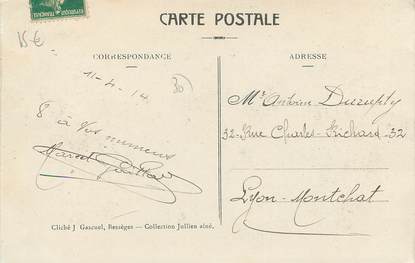 CARTE POSTALE
15€
CORRESPONDANCE
ADRESSE
11-4-14
30
8 à
Mr Antoin Duruply
32-Rue Charles-Richard-32
Lyon-Montchat
Cliché J Gascuel, Bessèges — Collection Jullien aîné.